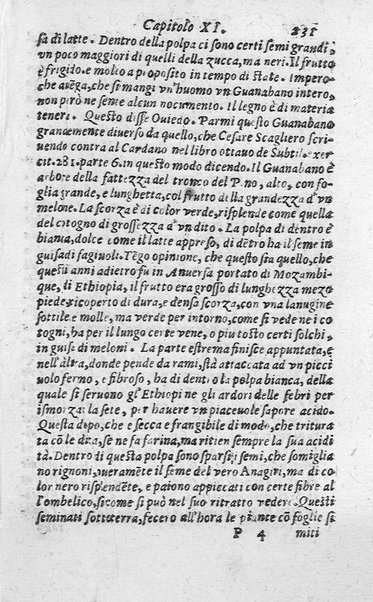 Capitolo XI. 231
sa di latte. Dentro della polpa ci sono certi semi grandi,
vn poco maggiori di quelli della zucca, ma neri. Il frutto
è frigido, e molto a proposito in tempo di state. Impero-
che ancõga, che si mangi vn'huomo vn Guanabano intero,
non pirò ne sente alcun nocumento. Il legno è di materia
tenera. Questo disse Ouiedo. Parmi questo Guanabano
grandemente diuerso da quello, che Cesare Scagliero scri-
uendo contra al Cardano nel libro ottauo de Subtil. exer
cit. 181. parte 6. in questo modo dicendo. Il Guanabano è
arbore della fattezza del tronco del Pino, alto, con fo-
glia grande, e lunghetta, col frutto della grandezza d'vn
melone. La scorza è di color verde, risplende come quella
del cotogno di grossezza d'vn dito. La polpa di dentro è
bianca, dolce come il latte appreso, di dẽtro ha il seme in
guisa di fagiuoli. Tẽgo opinione, che questo sia quello, che
questi anni adietro fu in Anuersa portato di Mozambi-
que, di Ethiopia, il frutto era grosso di lunghezza mezo
piede ricoperto di dura, e densa scorza, con vna lanugine
sottile e molle, ma verde per intorno, come si vede ne i co
togni, ha per il lungo certe vene, o piu tosto certi solchi,
in guisa di meloni. La parte estrema finisce appuntata, e
nell'altra, donde pende da rami, stà attaccata ad vn picci
uolo fermo, e fibroso, ha di dentro la polpa bianca, della
quale si seruono gl'Ethiopi ne gli ardori delle febri per
ismorzar la sete, per hauere vn piaceuole sapore acido.
Questa dopo, che è secca e frangibile di modo, che tritura
ta cõ le dita, se ne fa farina, ma ritien sempre la sua acidi
tà. Dentro di questa polpa sono sparsi i semi, che somiglia
no rignoni, veramẽte il seme del vero Anagiri, ma di co
lor nero risplendẽte, e paiono appiccati con certe fibre al
l'ombelico, sicome si può nel suo ritratto vedere. Questi
seminati sottoterra, fecero all'hora le piante cõ foglie si
P 4 miti